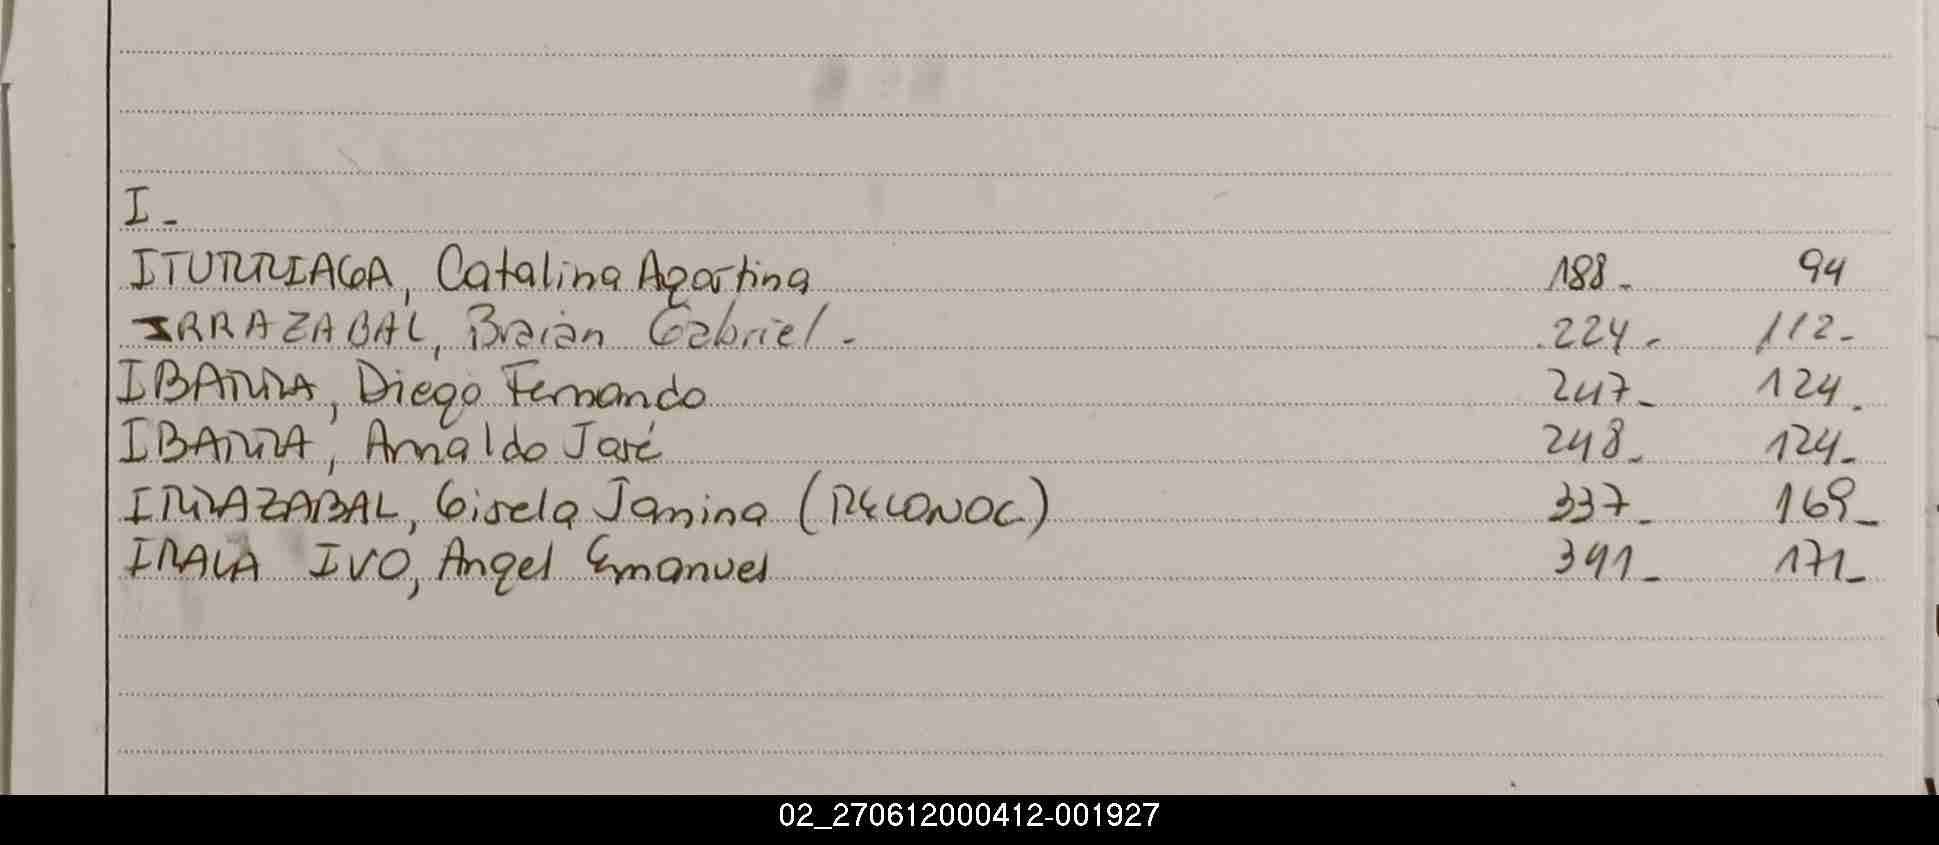 I -
ITURRIAGA, Catalina Agostina 188- 94
IRRAZABAL, Braian Gabriel - 224- 112-
IBARRA, Diego Fernando 247- 124-
IBARRA, Arnaldo José 248- 124-
IRRAZABAL, Gisela Jamina (RECONOC) 337- 169-
IRALA IVO, Angel Emanuel 341- 171-
02_270612000412-001927